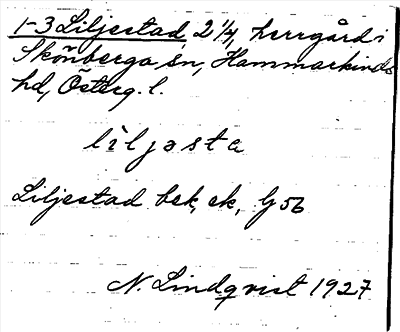 1-3 Liljestad 2 1/4, herrgård i
Skönberga sn, Hammarkinds
hd, Österg. l.
lìljəsta
Liljestad bek, ek, G 56
N. Lindqvist 1927